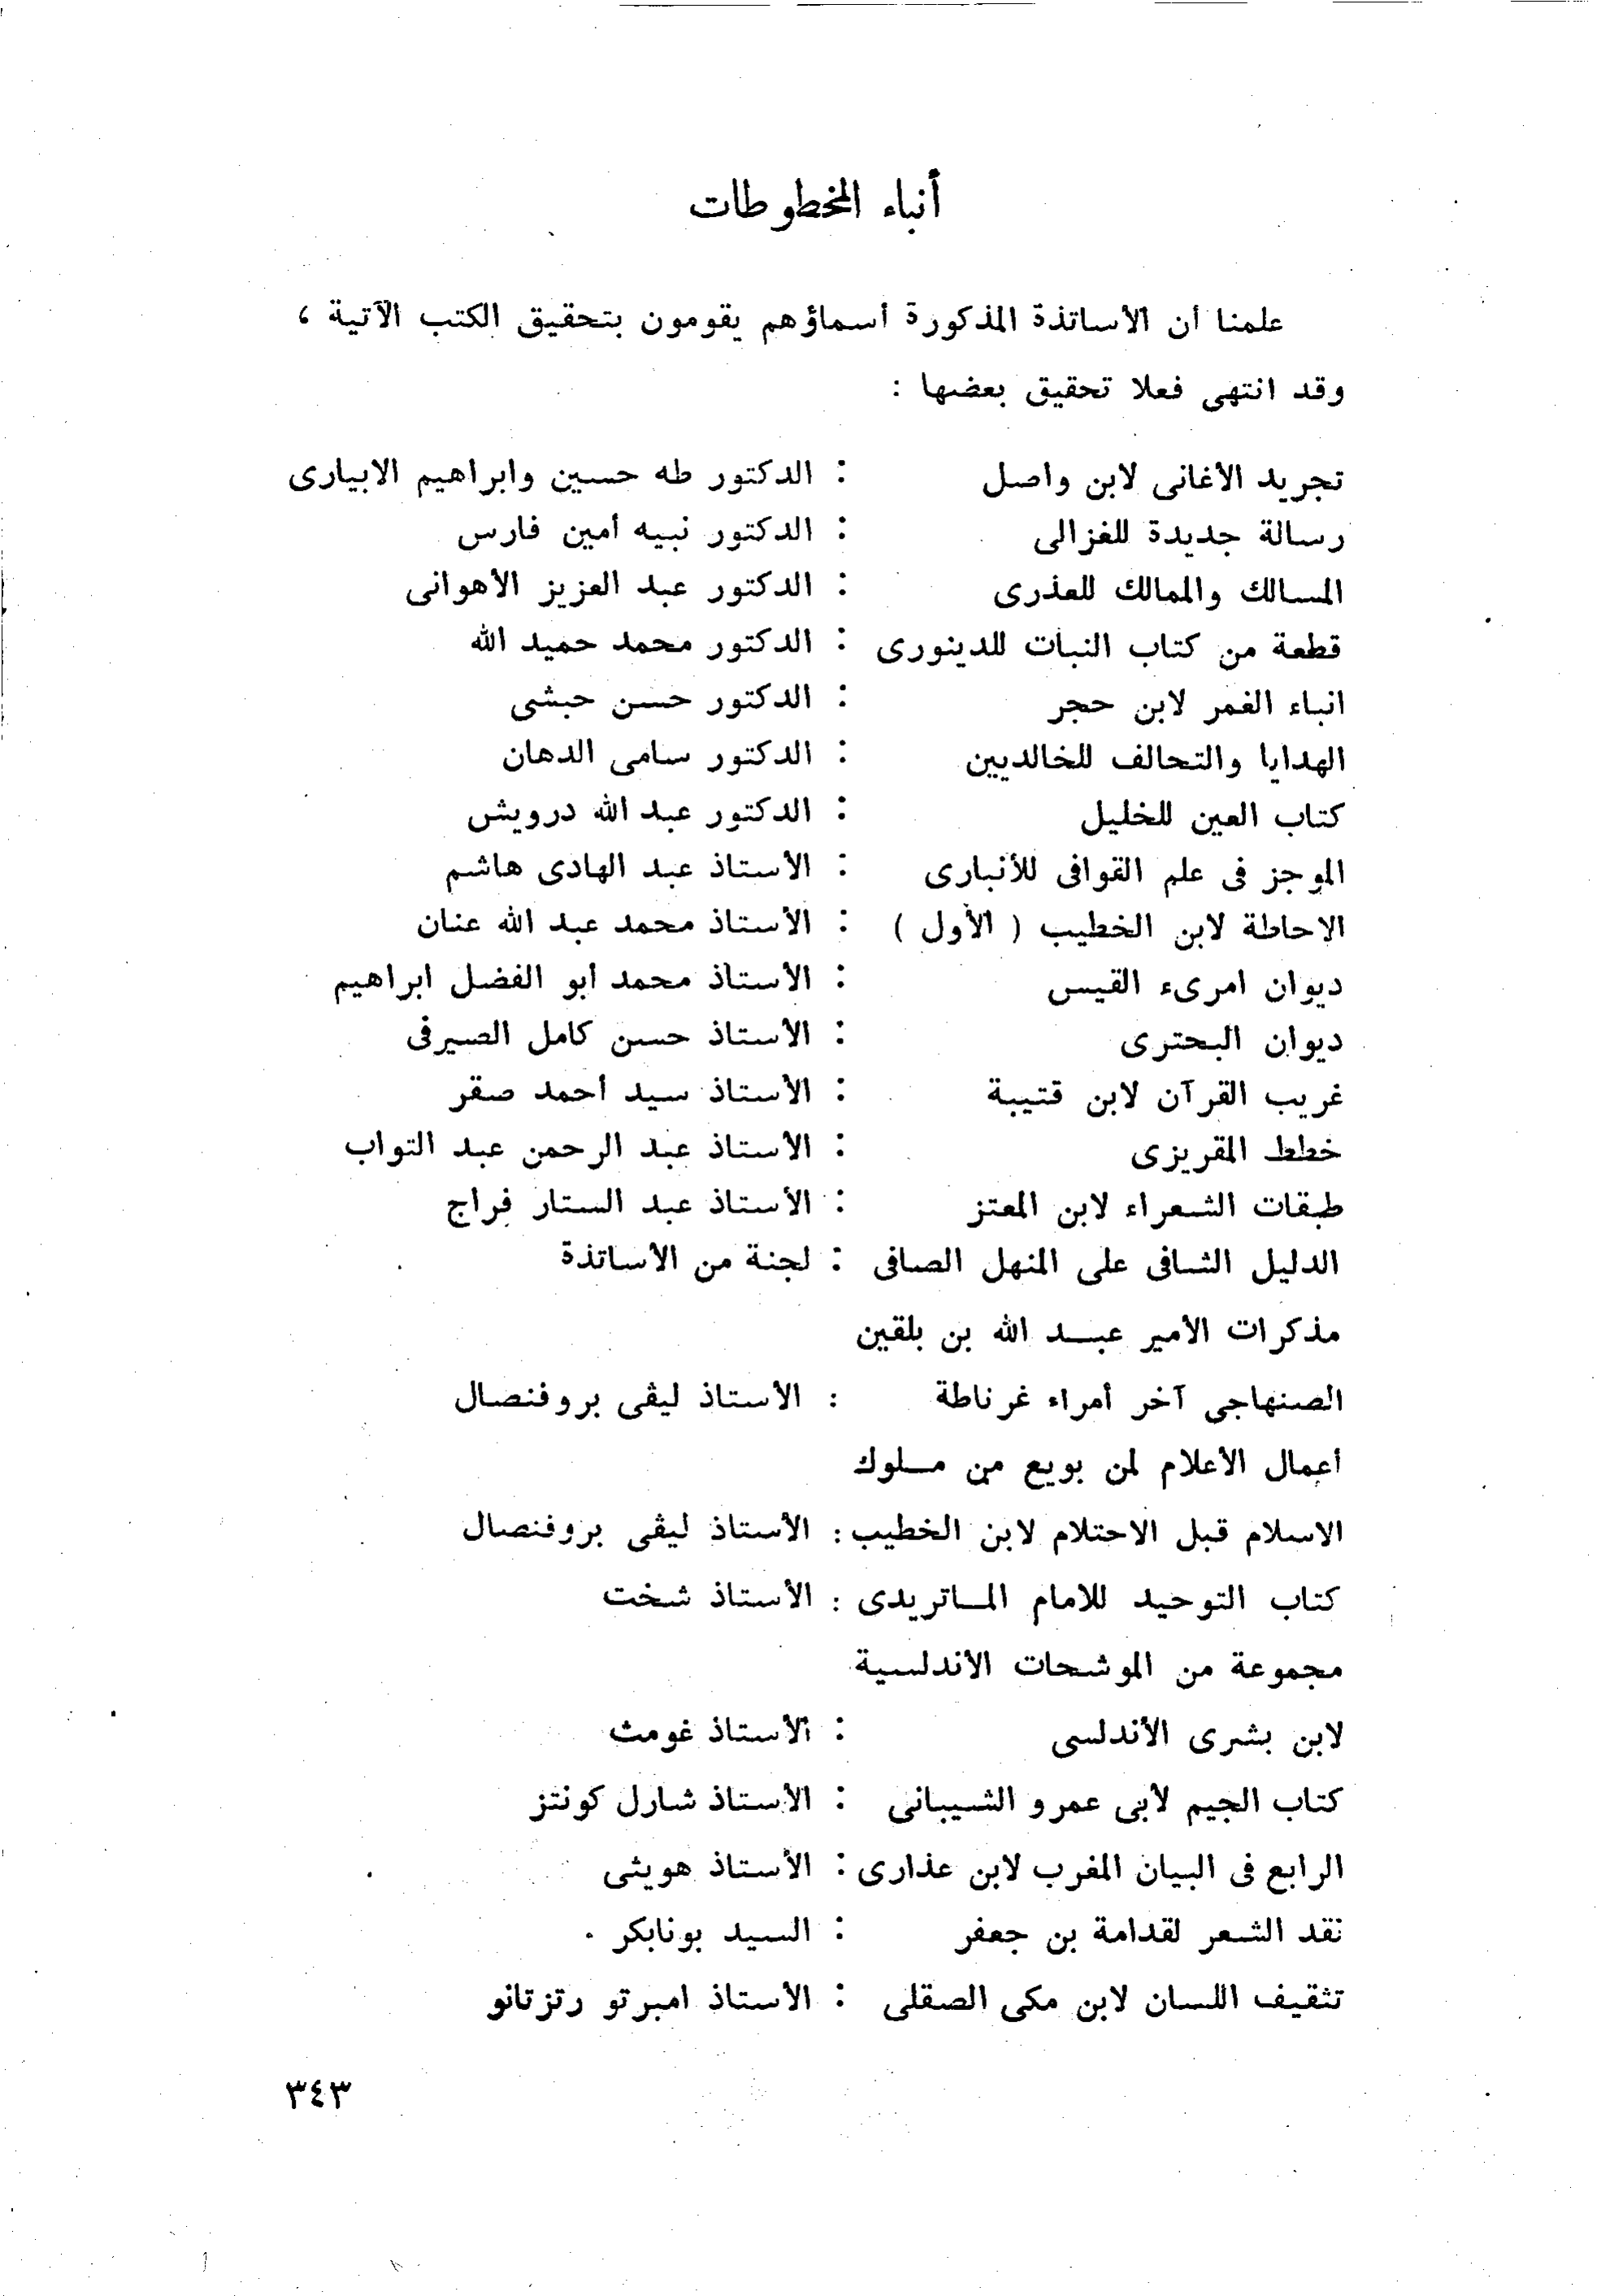 أنباء المخطوطات
علمنا أن الأساتذة المذكورة أسماؤهم يقومون بتحقيق الكتب الآتية ،
وقد انتهى فعلا تحقيق بعضها :
تجريد الأغانى لابن واصل : الدكتور طه حسين وابراهيم الابيارى
رسالة جديدة للغزالى : الدكتور نبيه أمين فارس
المسالك والممالك للعذرى : الدكتور عبد العزيز الأهوانى
قطعة من كتاب النبات للدينورى : الدكتور محمد حميد الله
انباء الغمر لابن حجر : الدكتور حسن حبشى
الهدايا والتحالف للخالديين : الدكتور سامى الدهان
كتاب العين للخليل : الدكتور عبد الله درويش
الموجز فى علم القوافى للأنبارى : الأستاذ عبد الهادى هاشم
الاحاطة لابن الخطيب ( الأول ) : الأستاذ محمد عبد الله عنان
ديوان امرىء القيس : الأستاذ محمد أبو الفضل ابراهيم
ديوان البحترى : الأستاذ حسن كامل الصيرفى
غريب القرآن لابن قتيبة : الأستاذ سيد أحمد صقر
خطط المقريزى : الأستاذ عبد الرحمن عبد التواب
طبقات الشعراء لابن المعتز : الأستاذ عبد الستار فراج
الدليل الشافى على المنهل الصافى : لجنة من الأساتذة
مذكرات الأمير عبد الله بن بلقين
الصنهاجى آخر أمراء غرناطة : الأستاذ ليڤى بروفنصال
أعمال الأعلام لمن بويع من ملوك
الاسلام قبل الاحتلام لابن الخطيب : الأستاذ ليڤى بروفنصال
كتاب التوحيد للامام الماتريدى : الأستاذ شخت
مجموعة من الموشحات الأندلسية
لابن بشرى الأندلسى : الأستاذ غومث
كتاب الجيم لأبى عمرو الشيبانى : الأستاذ شارل كونتز
الرابع فى البيان المغرب لابن عذارى : الأستاذ هويثى
نقد الشعر لقدامة بن جعفر : السيد بونابكر .
تثقيف اللسان لابن مكى الصقلى : الأستاذ امبرتو رتزتانو
٣٤٣